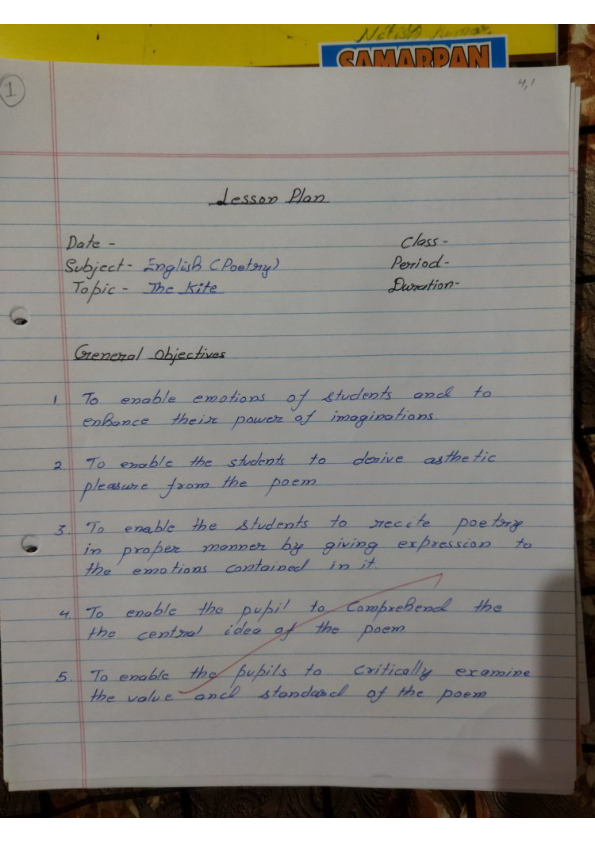 Nitish Kumar
SAMARPAN
1
4,1
Lesson Plan
Date -
Class -
Subject - English (Poetry)
Period -
Topic - The Kite
Duration -
General Objectives
1. To enable emotions of students and to
enhance their power of imaginations.
2. To enable the students to derive asthetic
pleasure from the poem
3. To enable the students to reccite poetry
in proper manner by giving expression to
the emotions contained in it.
4. To enable the pupil to comprehend the
the central idea of the poem
5. To enable the pupils to critically examine
the value and standard of the poem